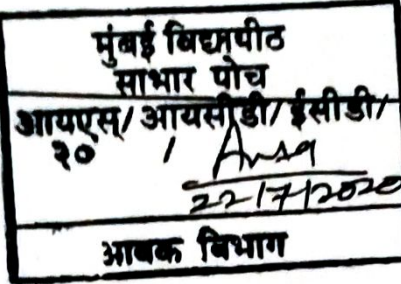 मुंबई विद्यापीठ
साभार पोच
आयएस/ आयसीडी/ ईसीडी/
२० /
22/7/2020
आवक विभाग